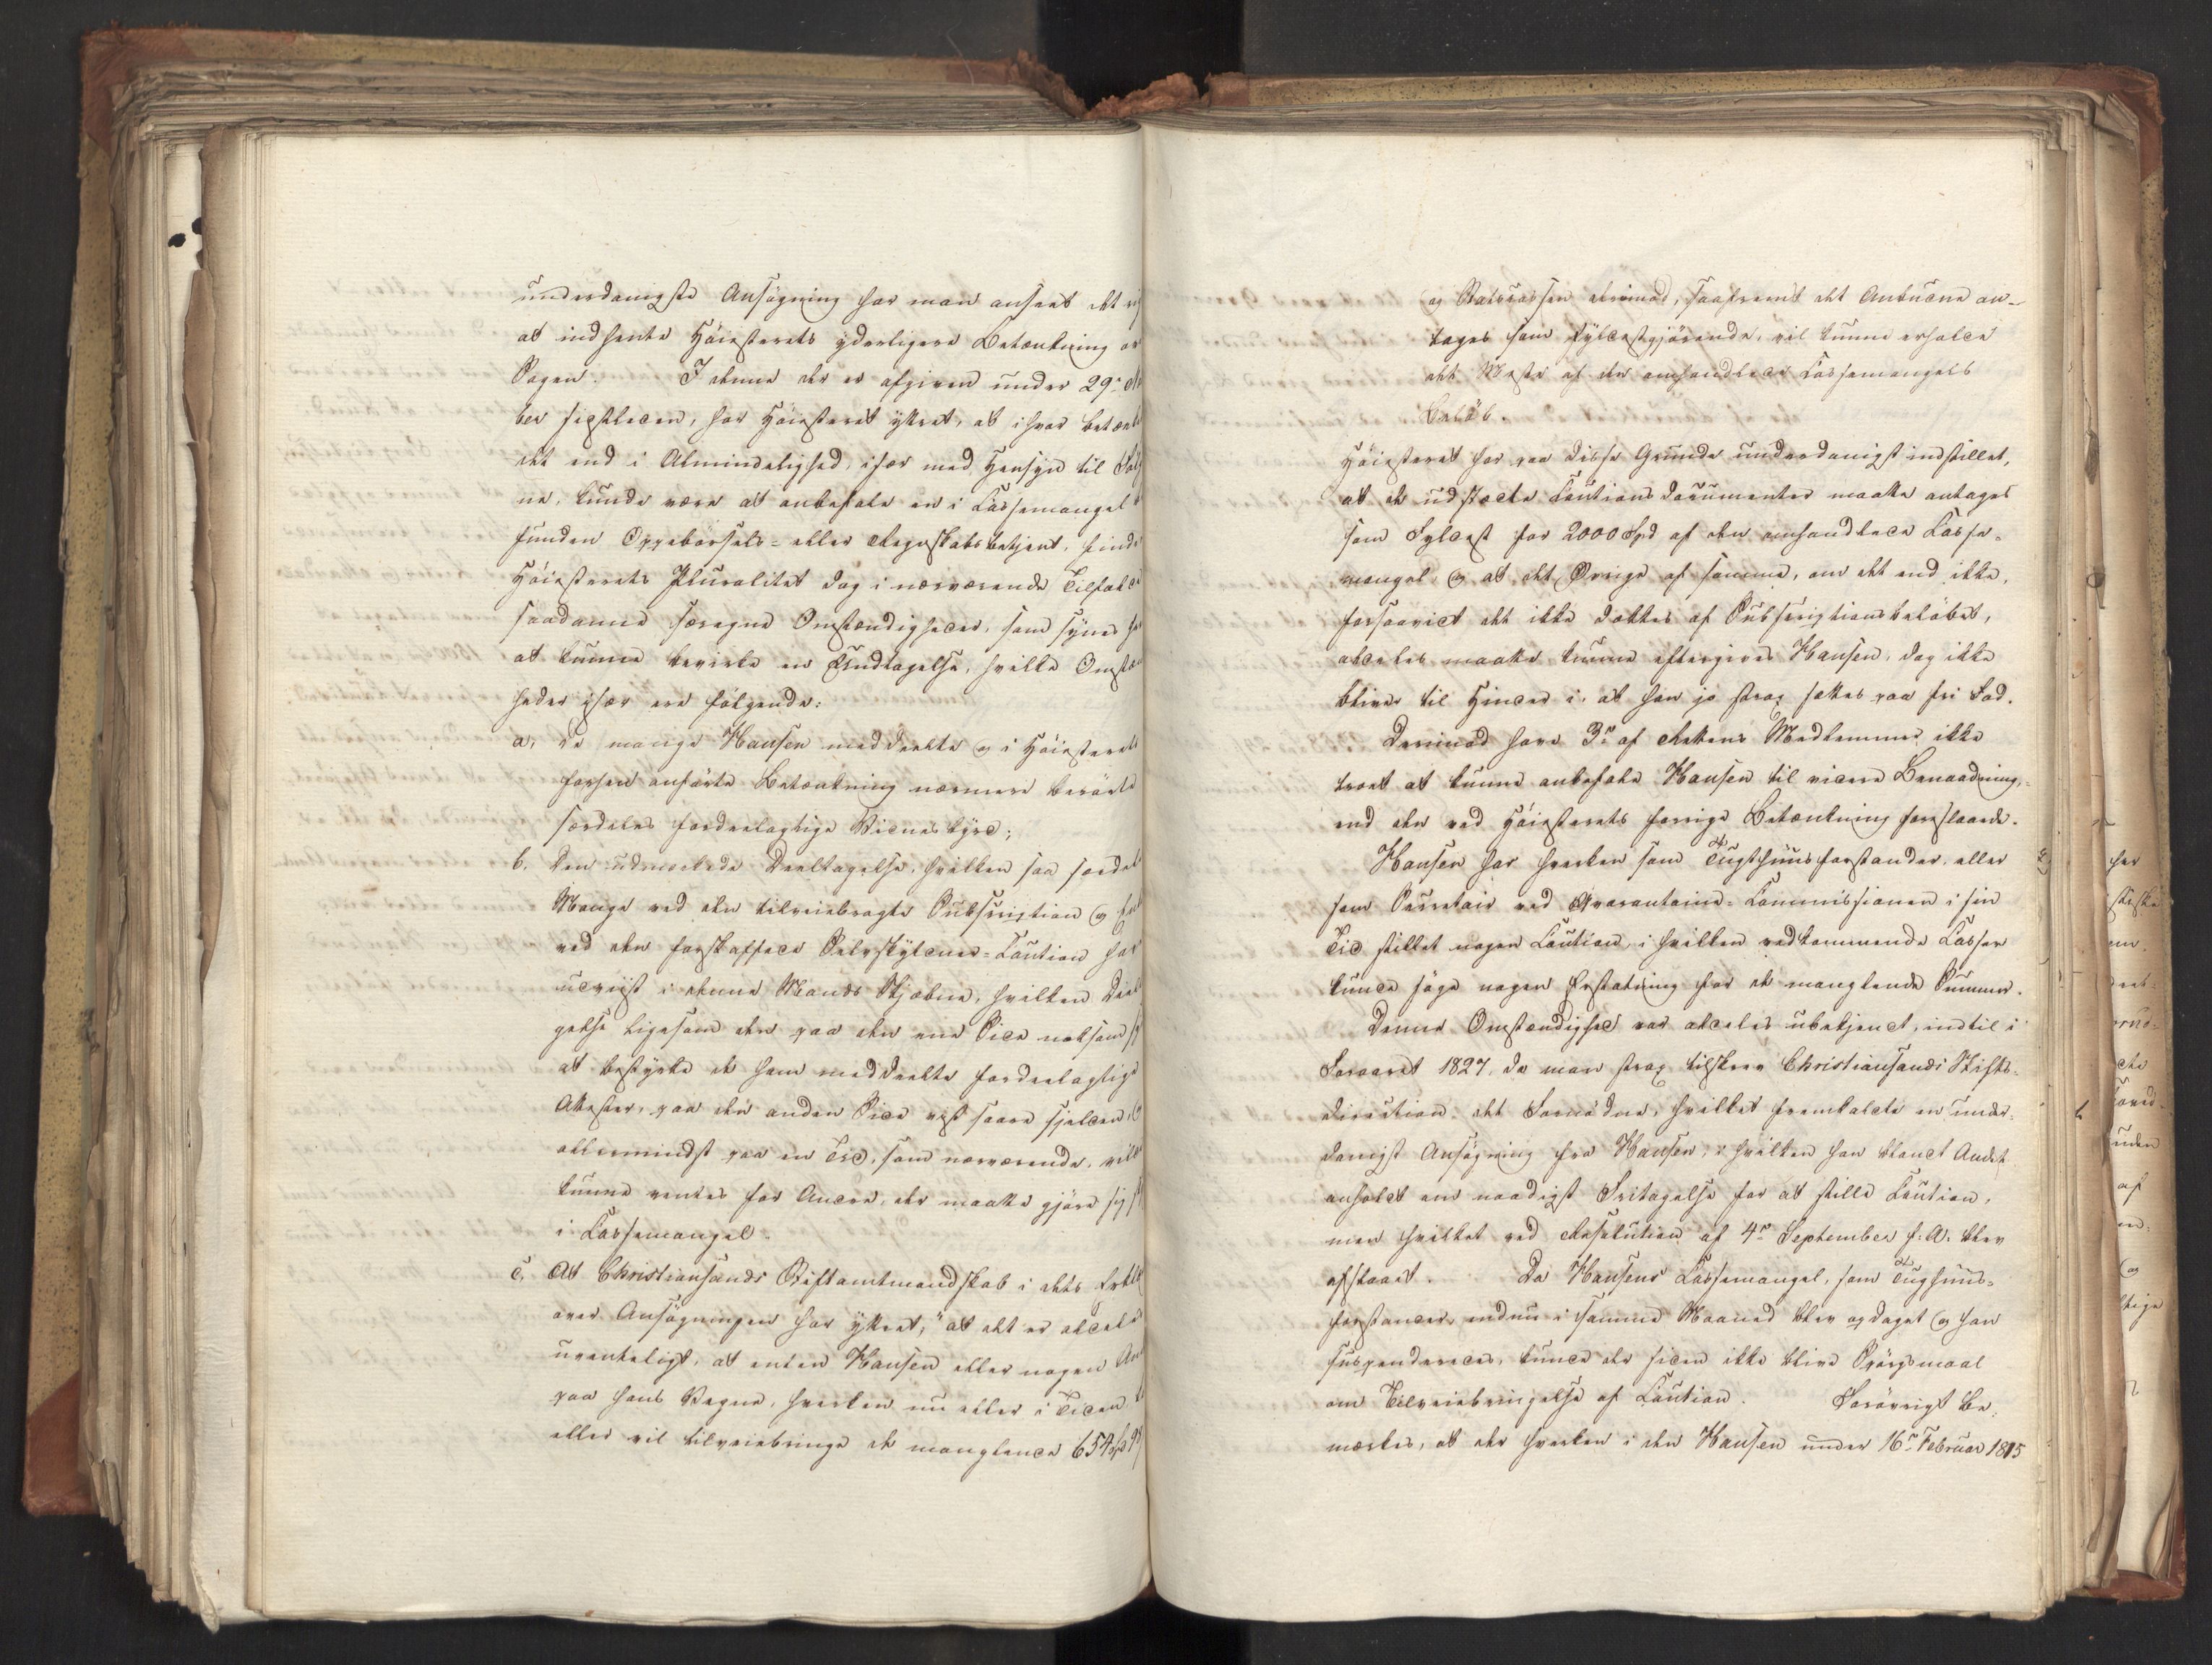 underdanigste Ansøgning har man anseet det
at indhente Høiesterets yderligere Betænkning
Sagen. I denne der er afgiven under 29de
ber sidstleden, har Høiesteret yttret, at ihvor betænke
det end i Almindelighed, især med Hensyn til Følg
ne, kunde være at anbefale en i Cassemangel
funden Oppebørsels- eller Regnskabsbetjent, finde
Høiesterets Pluralitet dog i nærværende Tilfælde
saadanne særegne Omstændigheder, som synes
at kunne bevirke en Undtagelse, hvilke Omstæn
heder især ere følgende:
a, de mange Hansen meddeelte og i Høiesterets
forhen anførte Betænkning nærmere berørte
særdeles fordeelagtige Vidnesbyrd;
b. Den udmærkede Deeltagelse, hvilken saa særdeles
Mange ved den tilveiebragte Subscription og
ved den forskaffede Selvskyldner-Caution har
udviist i denne Mands Skjæbne, hvilken Deelta
gelse ligesom den paa den ene Side noksom
at bestyrke de ham meddeelte fordeelagtige
Attester, paa den anden Side vist saare sjelden,
allermindst paa en Tid, som nærværende, vilde
kunne ventes for Andre, der maatte gjøre sig
i Cassemangel.
c, At Christiansands Stiftamtmandskab i dets Erklæ
over Ansøgningen har yttret, "at det er aldeles
uventeligt, at enten Hansen eller nogen
paa hans Vegne, hverken nu eller i Tiden
eller vil tilveiebringe de manglende 654
og Statscassen derimod, saafremt det Anbudne an-
tages som fyldestgjørende, vil kunne erholde
det Meste af den omhandlede Cassemangels
Beløb.
Høiesteret har paa disse Grunde underdanigst indstillet,
at de udstædte Cautions Documenter maatte antages
som Fyldest for 2000 Spd af den omhandlede Casse-
mangel og at det Øvrige af samme, om det end ikke,
forsaavidt det ikke dækkes af Subscriptionsbeløbet,
aldeles maatte kunne eftergives Hansen, dog ikke
bliver til Hinder i, at han jo strax sættes paa fri Fod.
Derimod have 3de af Rettens Medlemmer ikke
troet at kunne anbefale Hansen til videre Benaadning,
end den ved Høiesterets forrige Betænkning foreslaaede.
Hansen har hverken som Tugthuusforstander eller
som Secretair ved Qvarantaine-Commissionen i sin
Tid stillet nogen Caution, i hvilken vedkommende Casser
kunde søge nogen Erstatning for de manglende Summer.
Denne Omstændighed var aldeles ubekjendt, indtil i
Foraaret 1827, da man strax tilskrev Christiansands Stifts-
direction det Fornødne, hvilket fremkaldte en under-
danigst Ansøgning fra Hansen, i hvilken han blandt Andet
anholdt om naadigst Fritagelse for at stille Caution,
men hvilket ved Resolution af 4de September s. A. blev
afslaaet. Da Hansens Cassemangel, som Tugthuus-
forstander, endnu i samme Maaned blev opdaget og han
suspenderedes, kunde der siden ikke blive Spørgsmaal
om Tilveiebringelse af Caution. Forøvrigt be-
mærkes, at der hverken i den Hansen under 16de Februar 1815